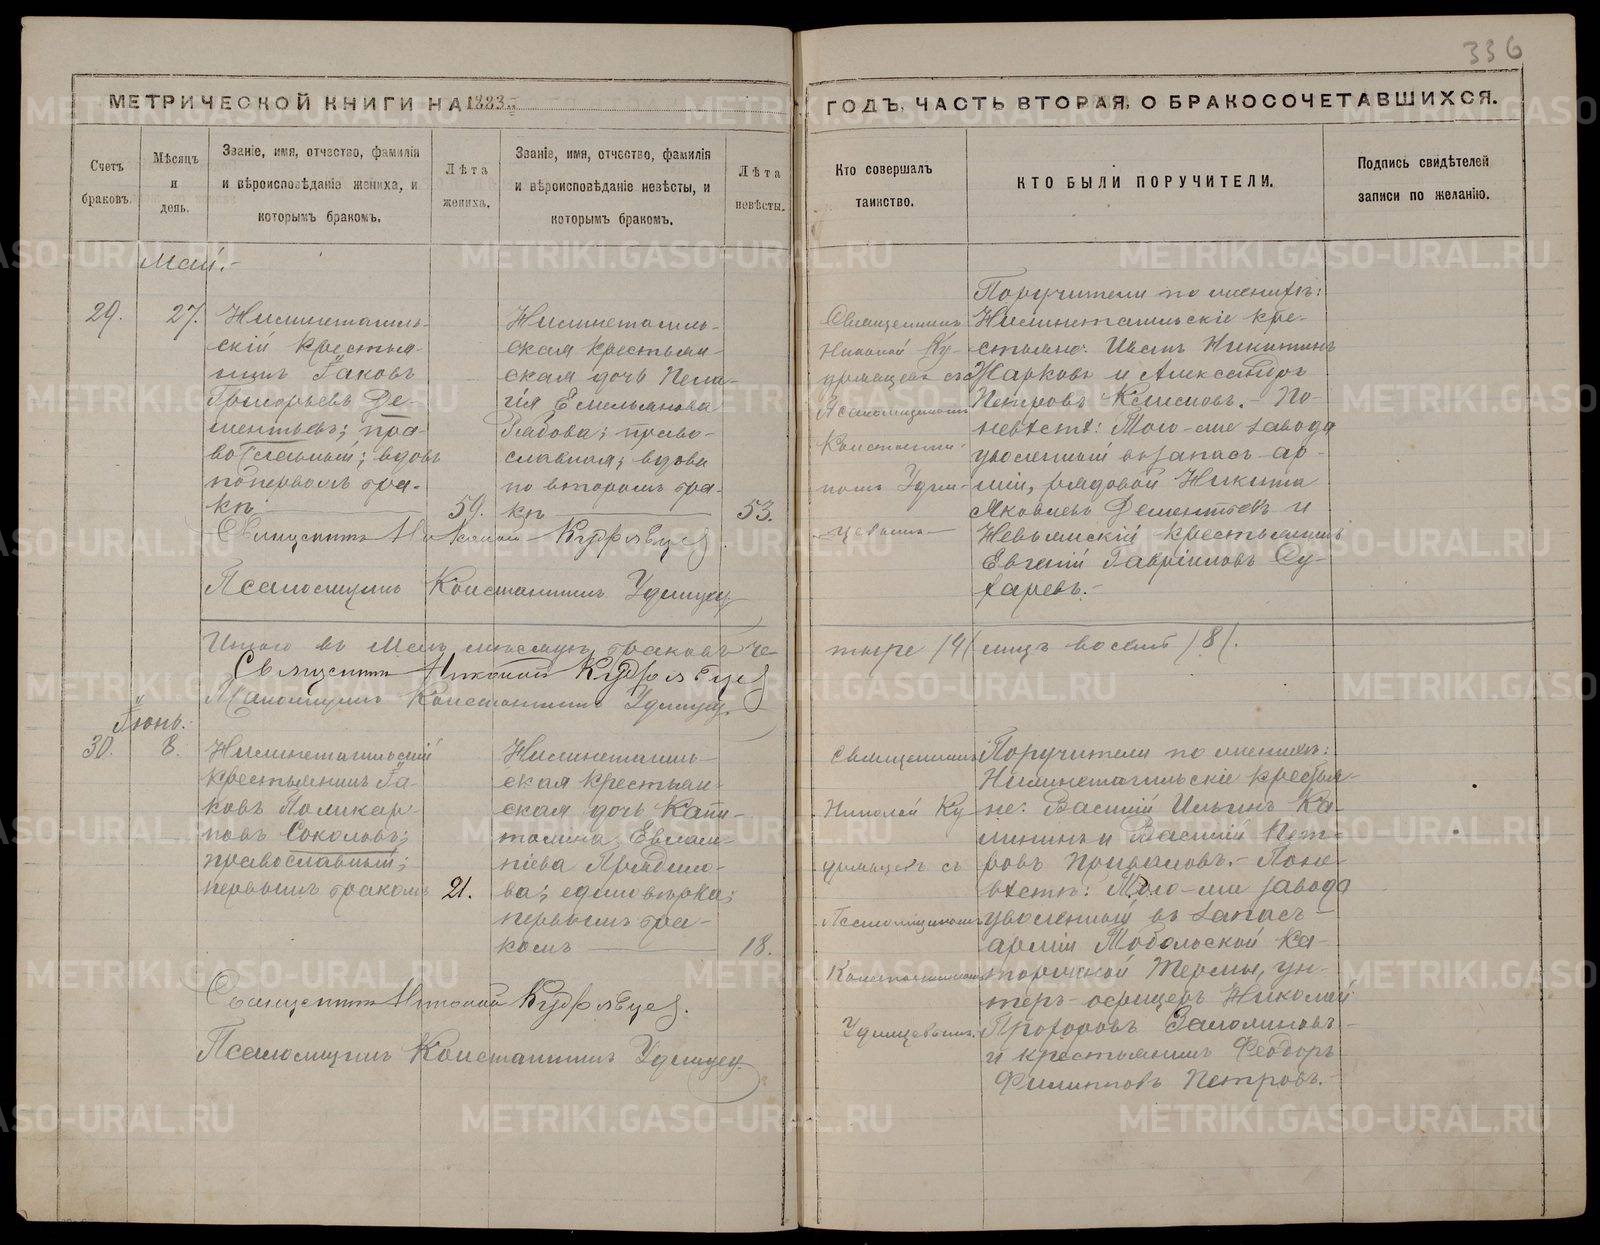 336
МЕТРИЧЕСКОЙ КНИГИ НА 1883
ГОДЪ, ЧАСТЬ ВТОРАЯ, О БРАКОСОЧЕТАВШИХСЯ.
Счетъ браковъ.
Мѣсяцъ и день.
Званіе, имя, отчество, фамилія
и вѣроисповѣданіе жениха, и
которымъ бракомъ.
Лѣта жениха.
Званіе, имя, отчество, фамилія
и вѣроисповѣданіе невѣсты, и
которымъ бракомъ.
Лѣта невѣсты.
Кто совершалъ
таинство.
КТО БЫЛИ ПОРУЧИТЕЛИ.
Подпись свидѣтелей
записи по желанію.
Май.-
29.
27.
Нижнетагиль-
скій крестья-
нинъ Іаковъ
Григорьевъ Де-
ментьевъ; пра-
вославный; вдовъ
по первомъ бра-
кѣ
59.
Нижнетагиль-
ская крестьян-
ская дочь Пела-
гія Емельянова
Бабова; право-
славная; вдова
по второмъ бра-
кѣ
53.
Священникъ
Николай Ку-
дрявцевъ съ
Псаломщикомъ
Константи-
номъ Удин-
цевымъ
Поручители по женихѣ:
Нижнетагильскіе кре-
стьяне: Иванъ Никитинъ
Жарковъ и Александръ
Петровъ Климовъ. - По
невѣстѣ: Того-же завода
уволенный въ запасъ ар-
міи, рядовой Никита
Яковлевъ Дементьевъ и
Невьянскій крестьянинъ
Евгеній Гавріиловъ Су-
харевъ.-
Священникъ Николай Кудрявцев
Псаломщикъ Константинъ Удинцев
Итого въ Маѣ мѣсяцѣ браковъ че-
тыре /4/ лицъ восемь /8/.
Священникъ Николай Кудрявцев
Псаломщикъ Константинъ Удинцев.
Іюнь.
30.
8.
Нижнетагильскій
крестьянинъ Іа-
ковъ Поликар-
повъ Соколовъ;
православный;
первымъ бракомъ
21.
Нижнетагиль-
ская крестьян-
ская дочь Капи-
толина Евлам-
піева
ва; единовѣрка;
первымъ бра-
комъ
18.
Священникъ
Николай Ку-
дрявцевъ съ
Псаломщикомъ
Константиномъ
Удинцевымъ.
Поручители по женихѣ:
Нижнетагильскіе крестья-
не: Василій Ильинъ Ка-
лининъ и Василій Пет-
ровъ - По не-
вѣстѣ: Того-же завода
уволенный въ запасъ
арміи Тобольской ка-
торжной тюрьмы, ун-
теръ-офицеръ Николай
Прохоровъ
и крестьянинъ Феодоръ
Филипповъ Петровъ.-
Священникъ Николай Кудрявцев.
Псаломщикъ Константинъ Удинцев.
METRIKI.GASO-URAL.RU